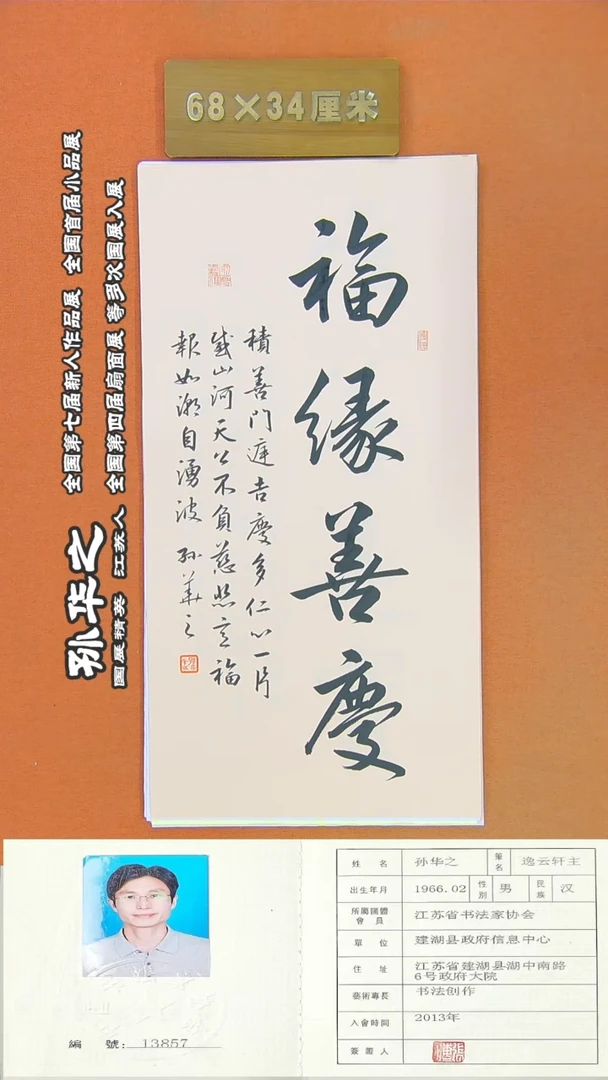 68×34厘米
福缘善慶
積善門庭吉慶多仁心一片
感山河天公不負慈悲意福
報如潮自湧波 孫華之
孙华之 全国第七届新人作品展 全国首届小品展
国展精英 江苏人 全国第四届扇面展 等多次国展入展
姓 名 孙华之 筆名 逸云轩主
出生年月 1966.02 性别 男 民族 汉
所屬團體會員 江苏省书法家协会
單 位 建湖县政府信息中心
住 址 江苏省建湖县湖中南路
6号政府大院
藝術專長 书法创作
入會時間 2013年
簽證人
編 號: 13857